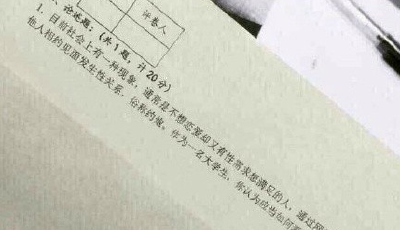 评卷人
、论述题：（共1题，计20分）
1、目前社会上有一种现象，通常是不想恋爱却又有性需求想满足的人，通过网
他人相约见面发生性关系，俗称约炮。作为一名大学生，你认为应当如何